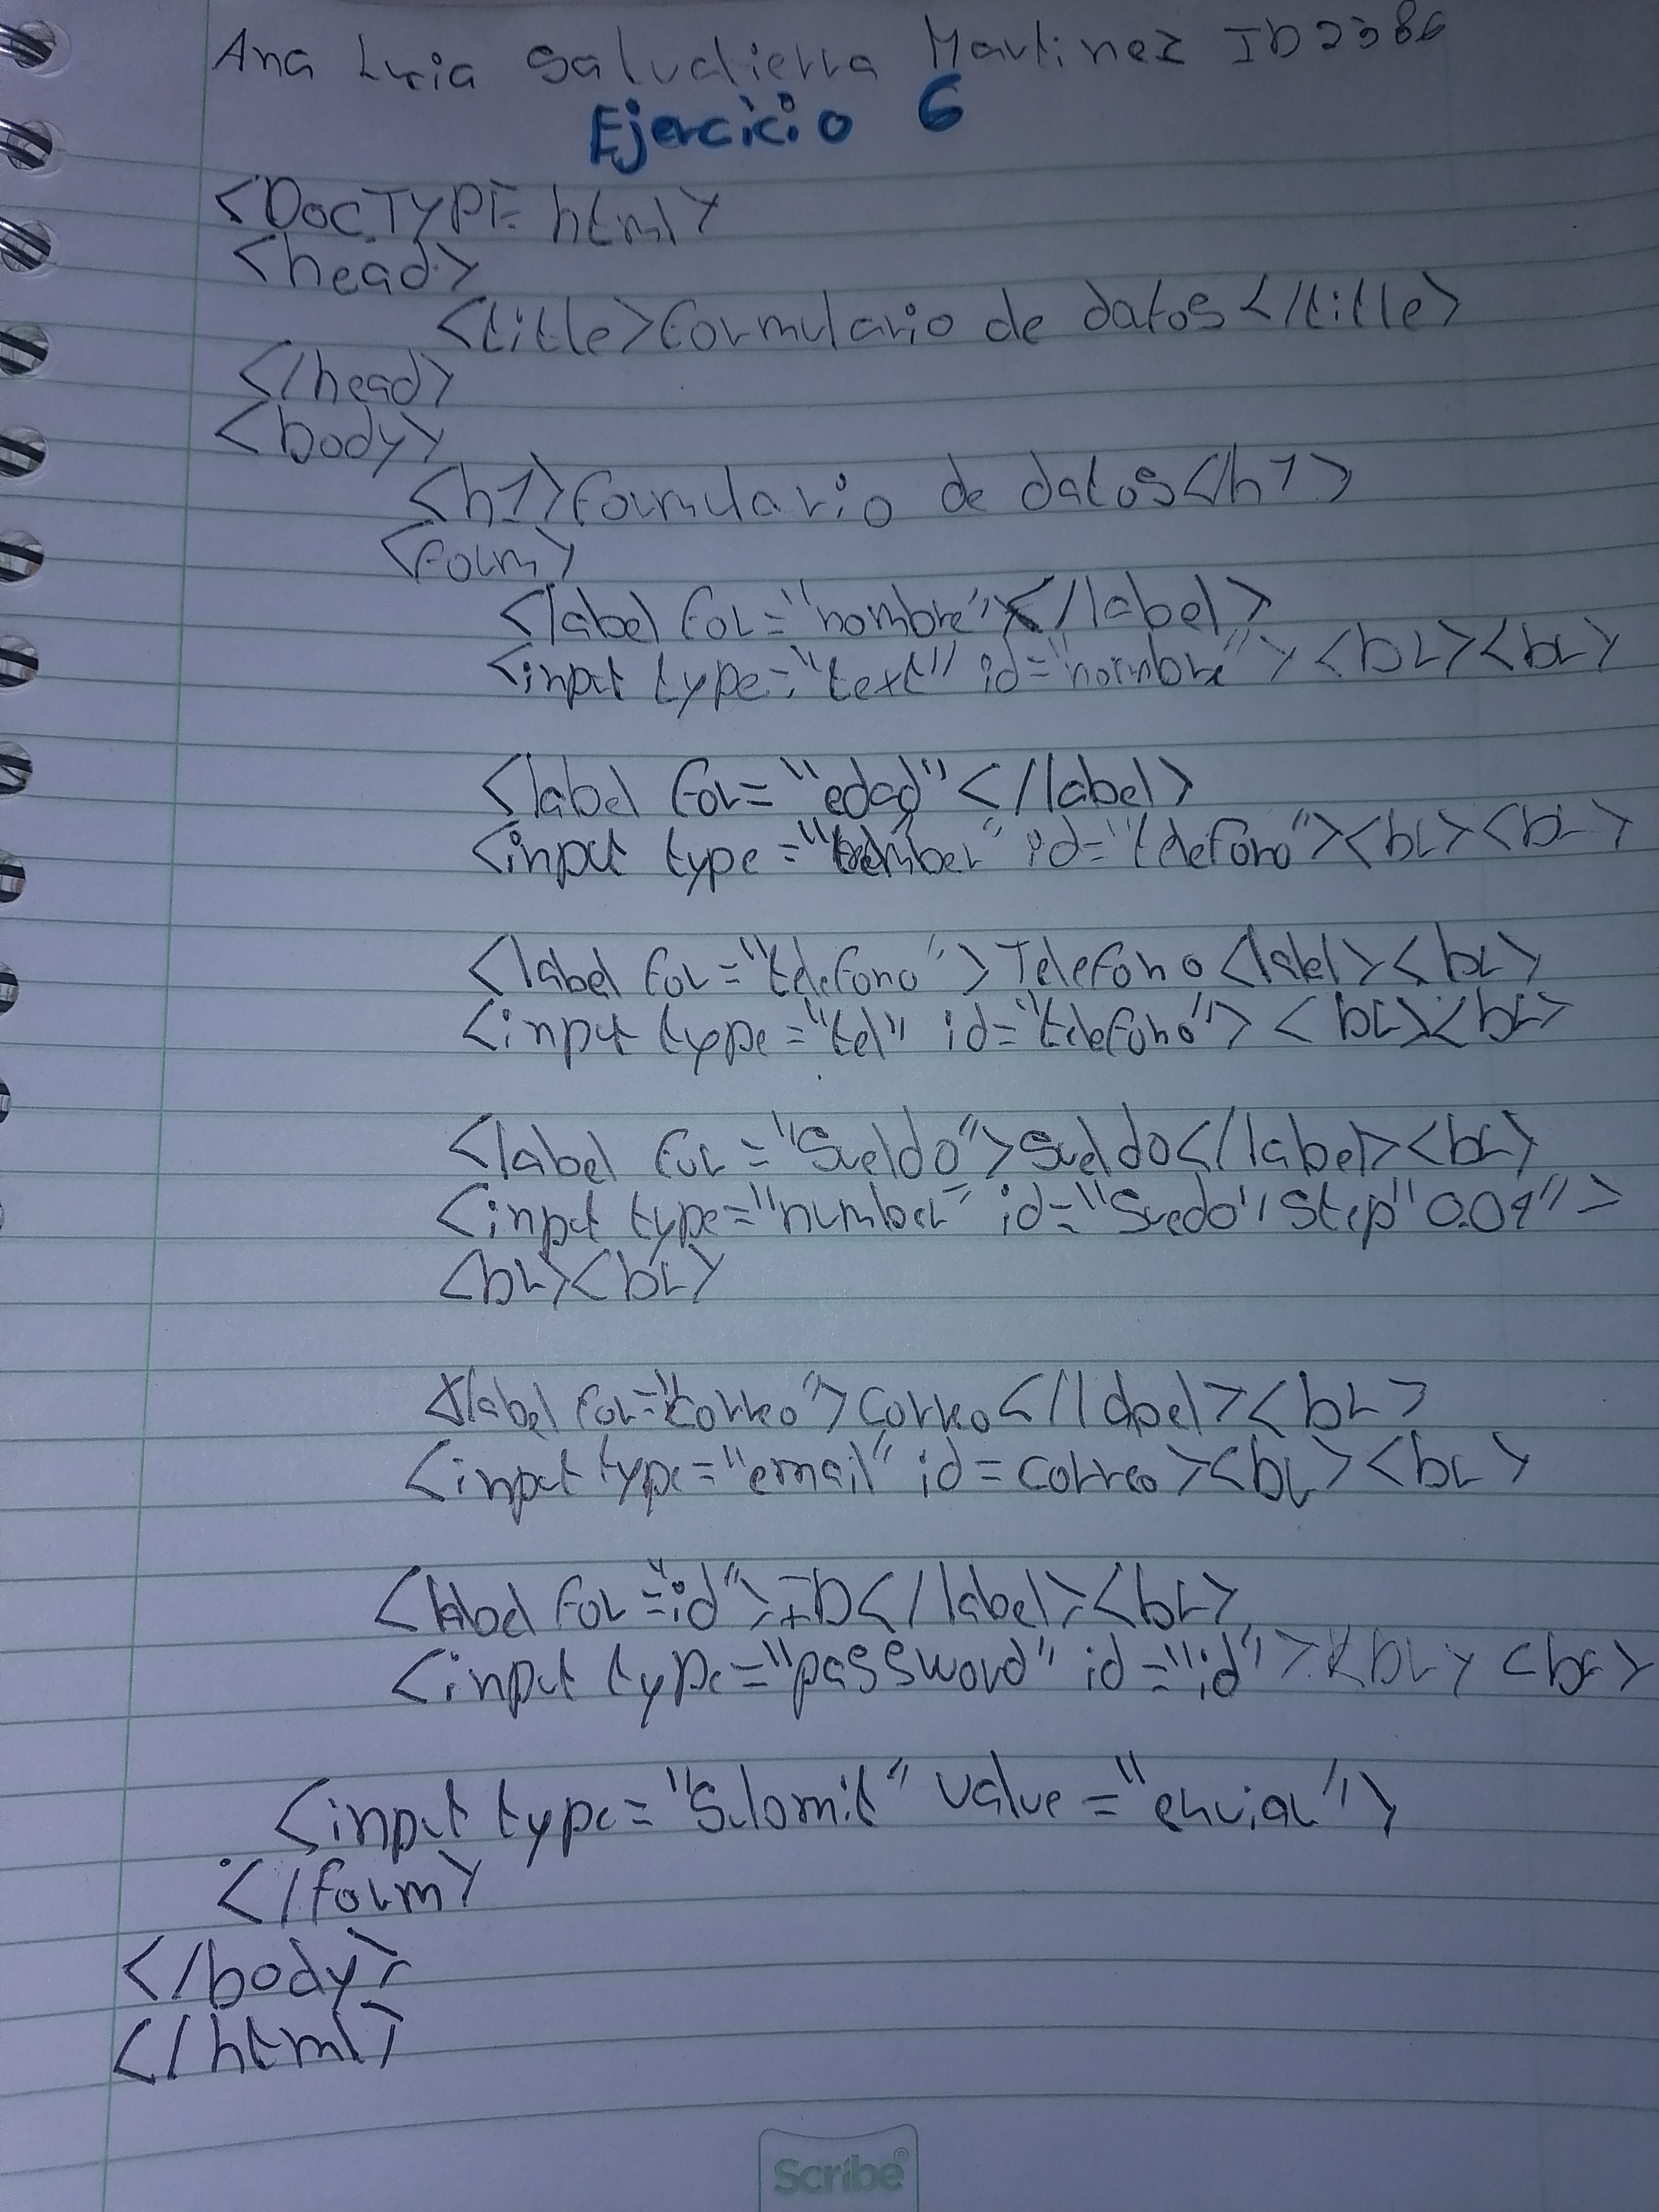 Ana Lucia Salvatierra Martinez ID2386
Ejercicio 6
<DOCTYPE html>
<head>
<title>Formulario de datos</title>
</head>
<body>
<h1>Formulario de datos</h1>
<form>
<label for="nombre"></label>
<input type="text" id="nombre"><br><br>
<label for="edad"</label>
<input type="number" id="telefono"><br><br>
<label for="telefono">Telefono<label><br>
<input type="tel" id="telefono"><br><br>
<label for="Sueldo">Sueldo</label><br>
<input type="number" id="Suedo" Step"0.01">
<br><br>
<label for="correo">Correo</label><br>
<input type="email" id=correo><br><br>
<label for="id">ID</label><br>
<input type="password" id="id"><br><br>
<input type="Submit" value="enviar">
</form>
</body>
</html>
Scribe